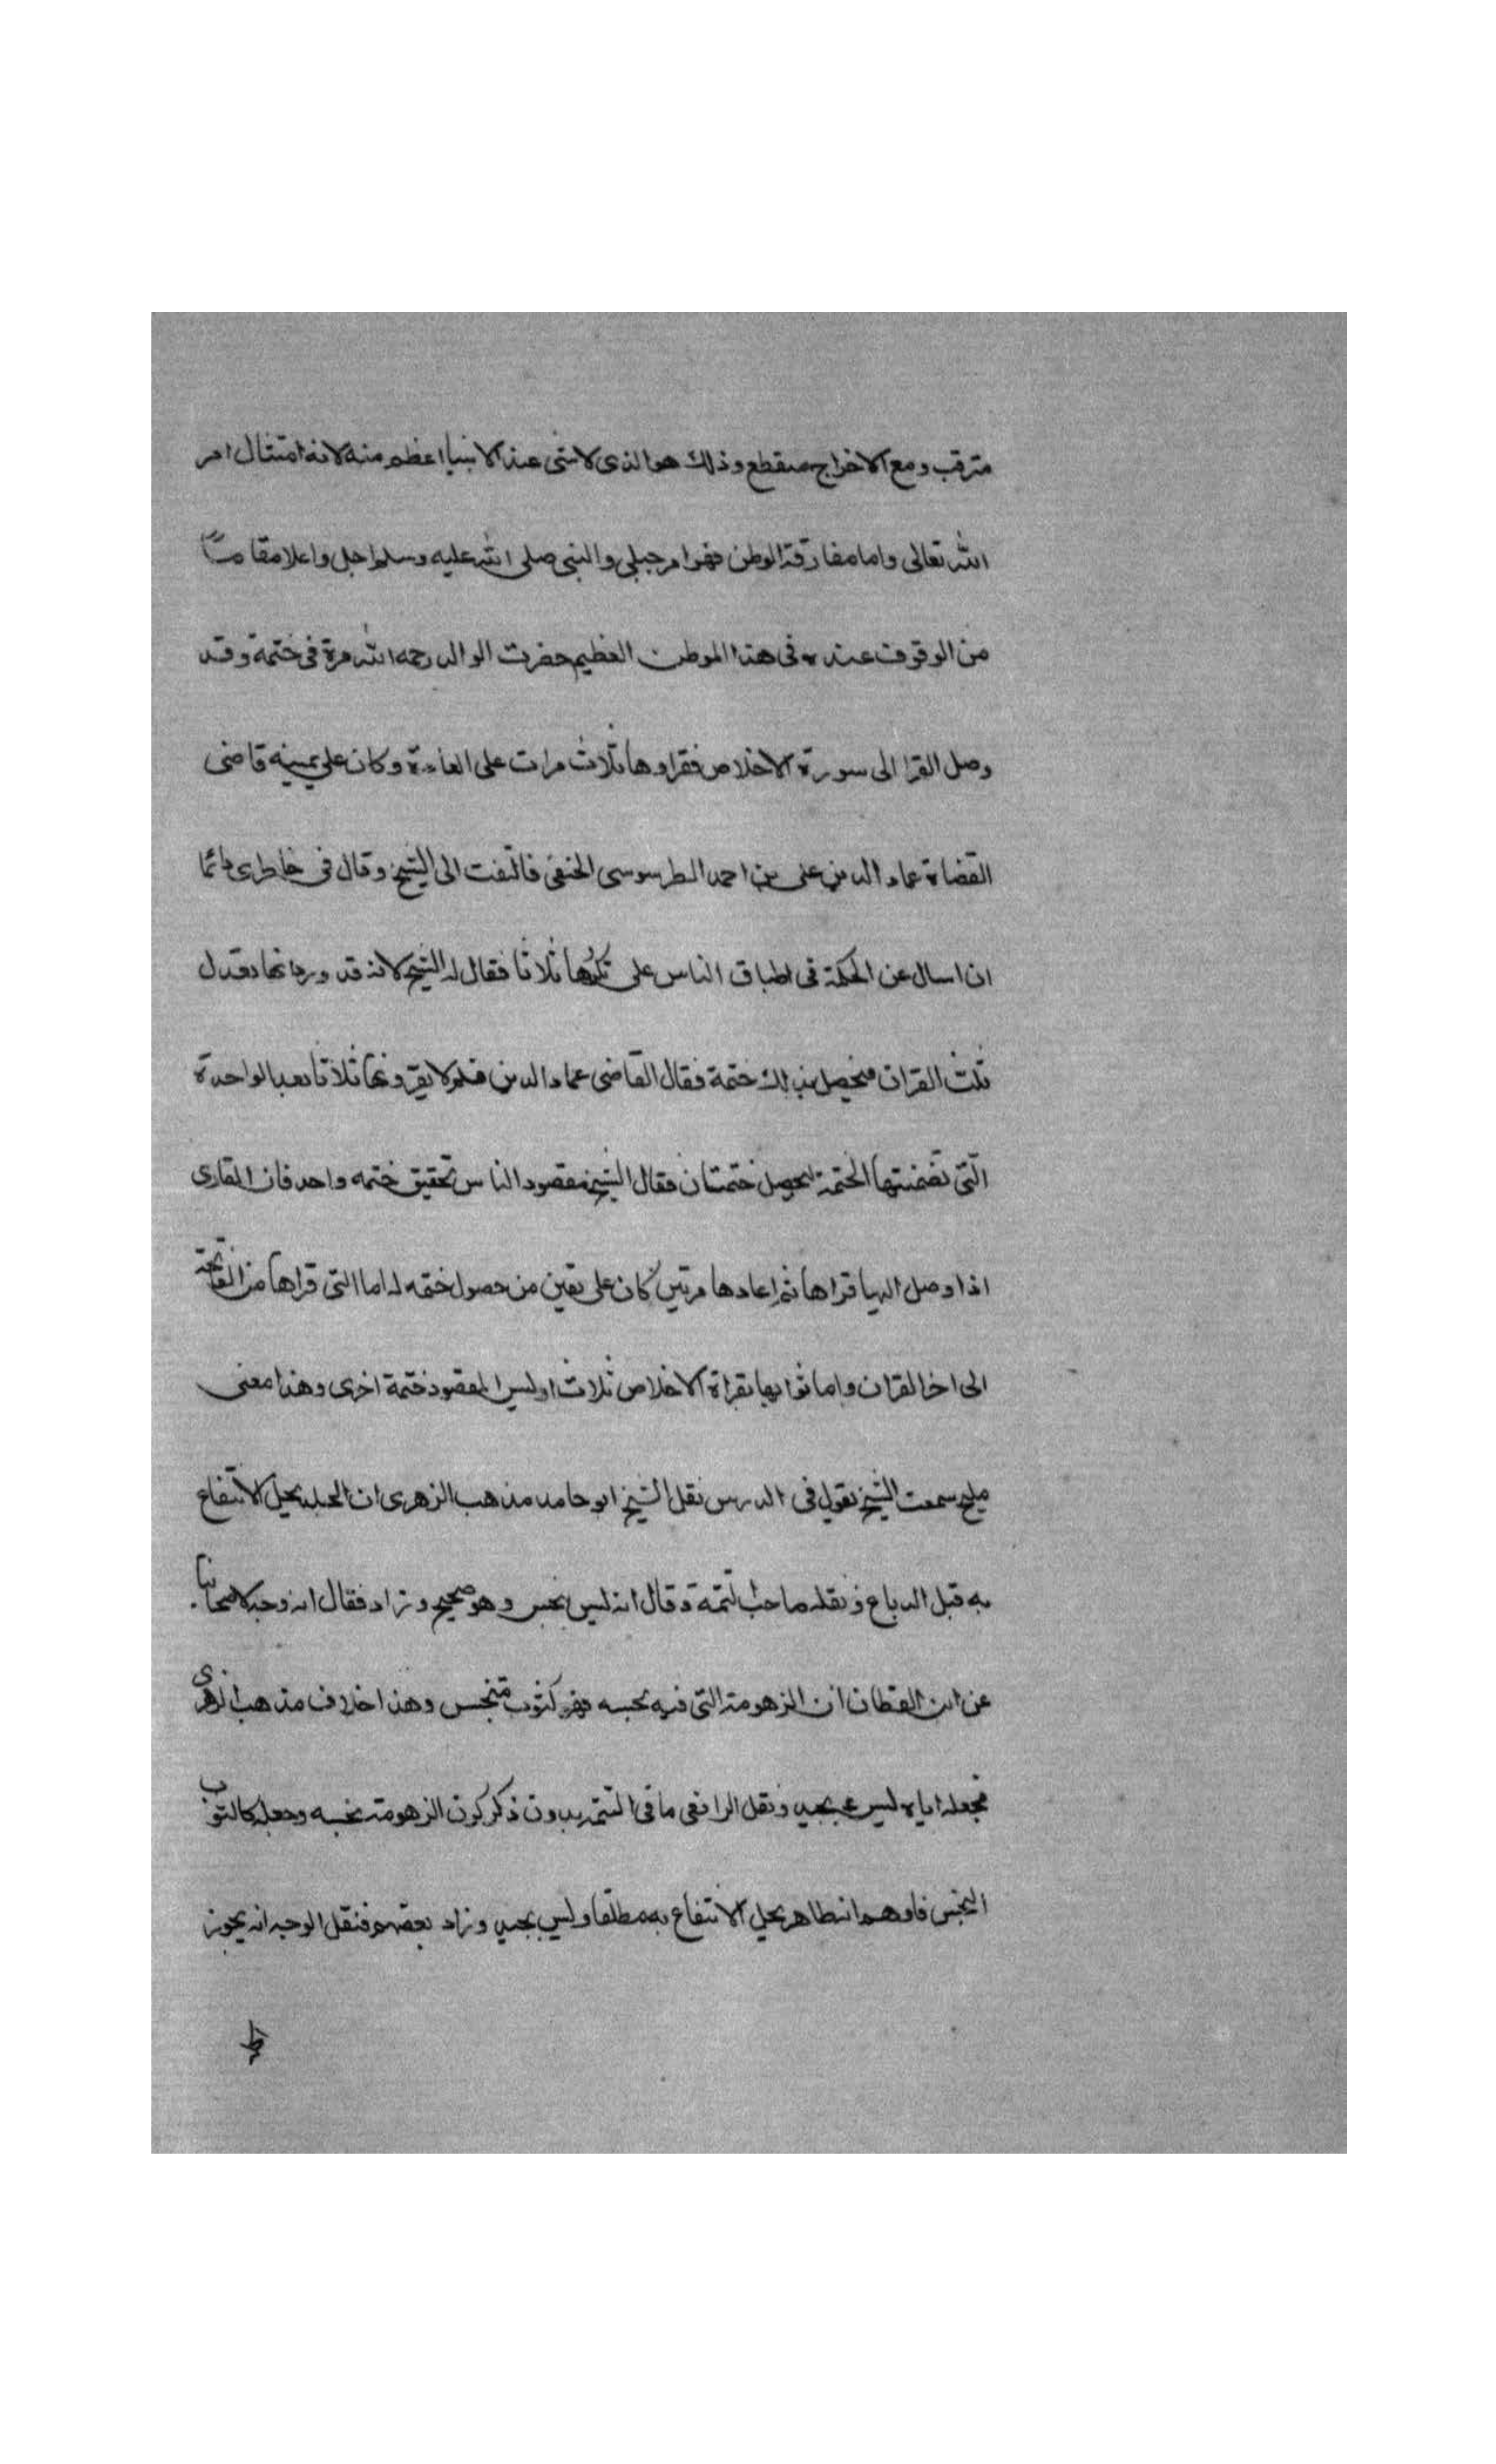 مترقب ومع الاخراج منقطع وذلك هو الذى لا شى عند الانبيا اعظم منه لانه امتثال امر
الله تعالى واما مفارقة الوطن فهو امر جبلي والنبى صلى الله عليه وسلم اجل واعلا مقاما
من الوقوف عنده فى هذا الموطن العظيم حضرت الوالد رحمه الله مرة فى ختمة وقد
وصل القرا الى سورة الاخلاص فقراوها ثلاث مرات على العادة وكان على يمينه قاضى
القضاة عماد الدين على بن احمد الطرسوسى الحنفى فالتفت الى الشيخ وقال فى خاطرى دائما
ان اسال عن الحكمة فى اطباق الناس على تكررها ثلاثا فقال له الشيخ لانه قد ورد انها تعدل
ثلث القران فيحصل بذلك ختمة فقال القاضى عماد الدين فلم لا يقرونها ثلاثا بعد الواحدة
التى تضمنتها الختمة ليحصل ختمتان فقال الشيخ مقصود الناس تحقيق ختمه واحد فان القارى
اذا وصل اليها قراها ثم اعادها مرتين كان على يقين من حصول ختمه له اما التى قراها من الفاتحة
الى اخر القران واما ثوابها بقراة الاخلاص ثلاث اوليس المقصود ختمة اخرى وهذا معنى
مليح سمعت الشيخ يقول فى الدرس نقل الشيخ ابو حامد مذهب الزهرى ان الجلد يحل الانتفاع
به قبل الدباغ ونقله صاحب التتمة وقال انه ليس بنجس وهو صحيح وزاد فقال انه وجه لاصحابنا
عن ابن القطان ان الزهومة التى فيه نجسه فهو كثوب متنجس وهذا خلاف مذهب الزهرى
فجعله اياه ليس بجيد ونقل الرافعى ما فى التتمه بدون ذكر كون الزهومة نجسه وجعله كالثوب
النجس فاوهم انه طاهر يحل الانتفاع به مطلقا وليس بجيد وزاد بعضهم فنقل الوجه انه يجوز